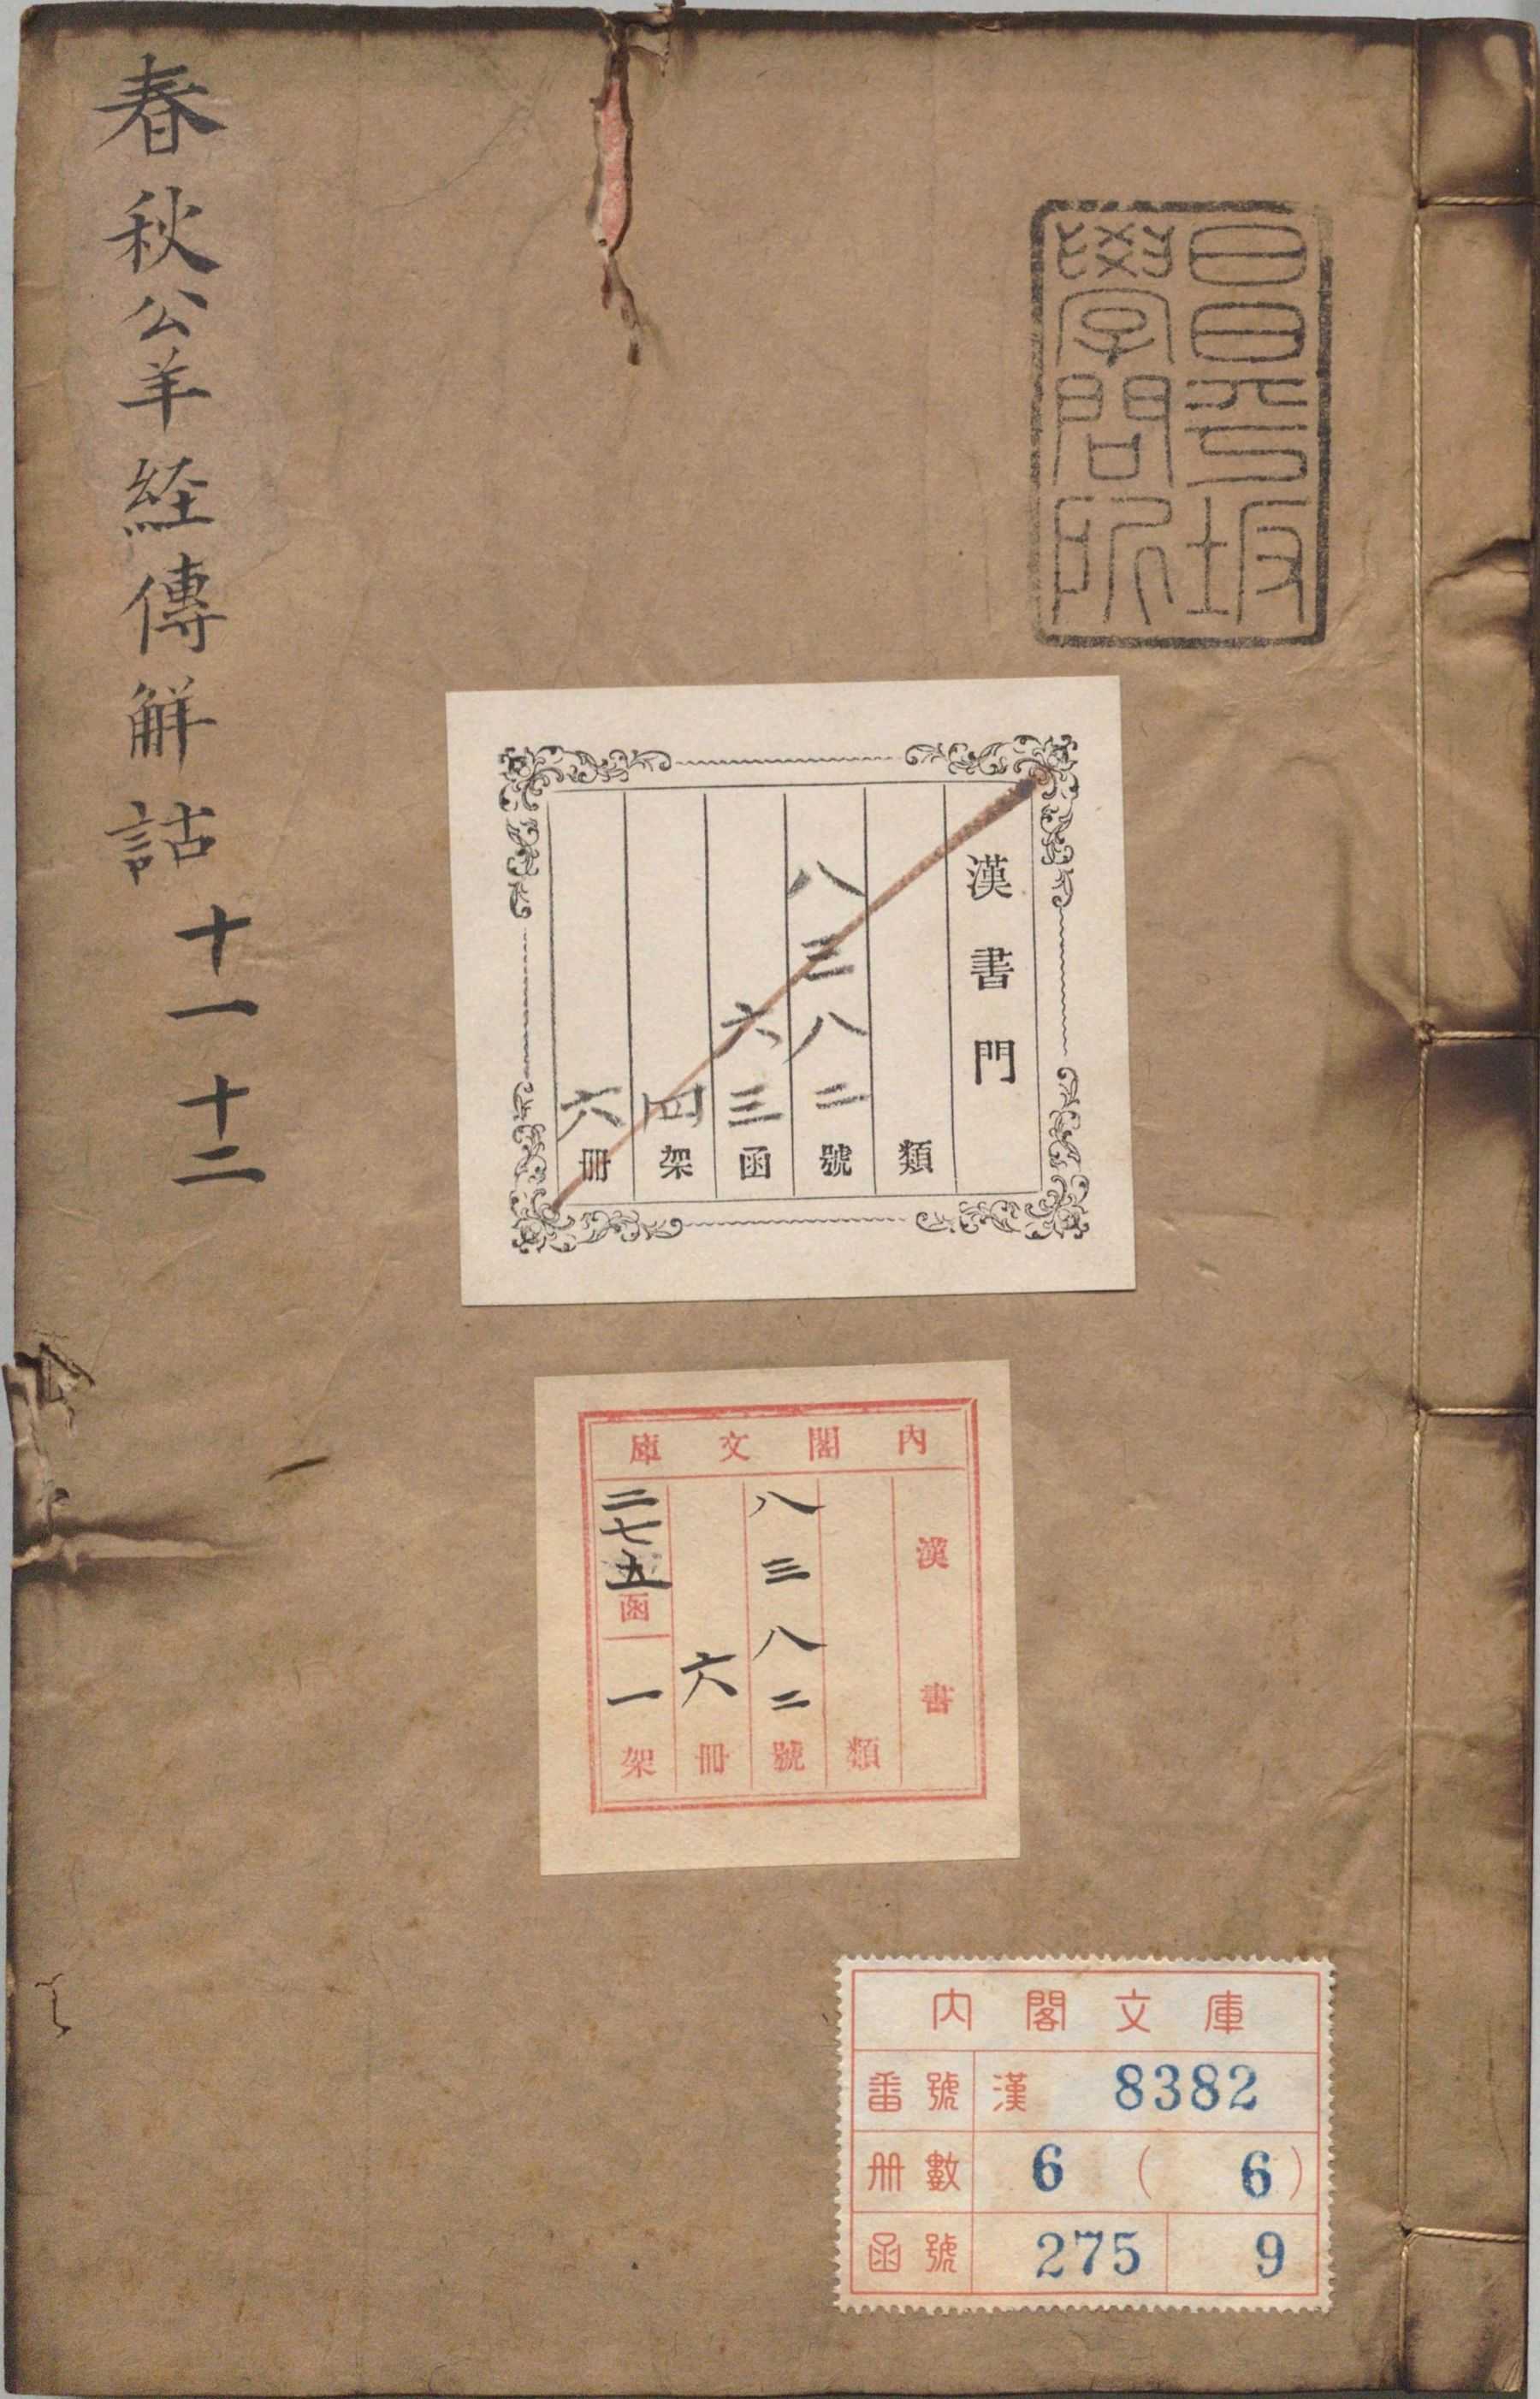 春秋公羊経傳解詁 十一 十二
昌平坂
學問所
漢書門
類
八三八二號
六三函
四架
六冊
內閣文庫
漢書
類
八三八二號
六冊
二七五函一架
内閣文庫
番號 漢 8382
冊數 6 ( 6 )
函號 275 9